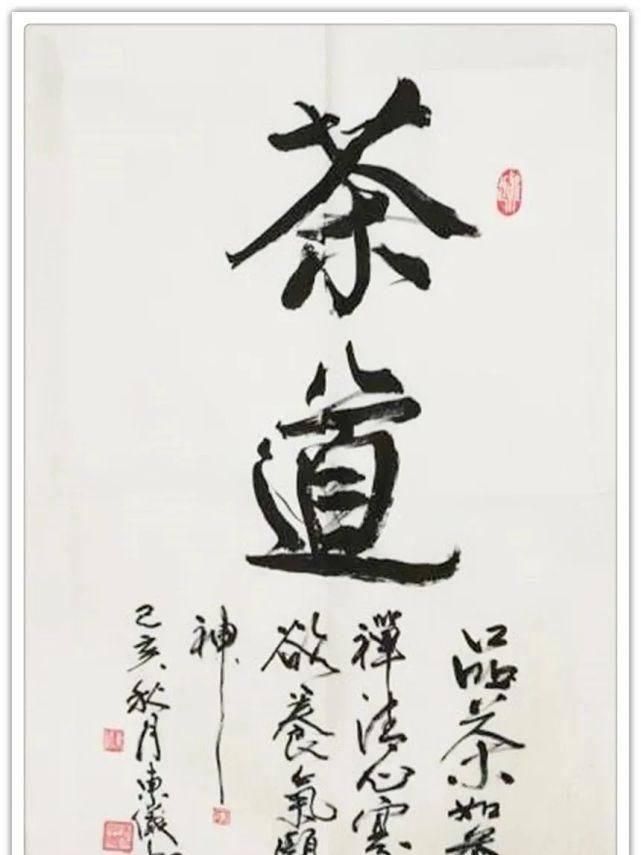 茶道
品茶如參
禪清心寡
欲養氣頤
神
己亥秋月東儀